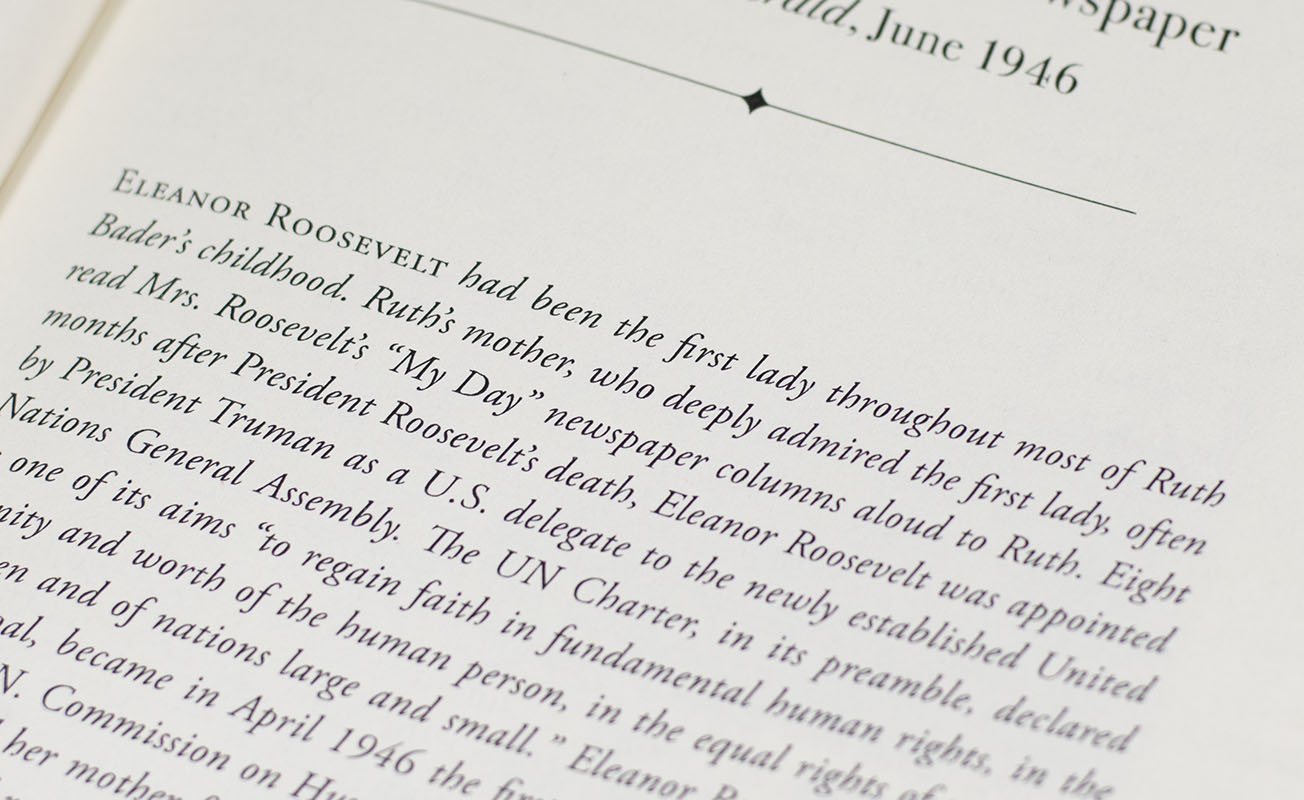 wspaper
rald, June 1946
ELEANOR ROOSEVELT had been the first lady throughout most of Ruth
Bader's childhood. Ruth's mother, who deeply admired the first lady, often
read Mrs. Roosevelt's “My Day” newspaper columns aloud to Ruth. Eight
months after President Roosevelt's death, Eleanor Roosevelt was appointed
by President Truman as a U.S. delegate to the newly established United
Nations General Assembly. The UN Charter, in its preamble, declared
one of its aims “to regain faith in fundamental human rights, in the
nity and worth of the human person, in the equal rights of
en and of nations large and small.” Eleanor
al, became in April 1946 the
N. Commission on
her mother